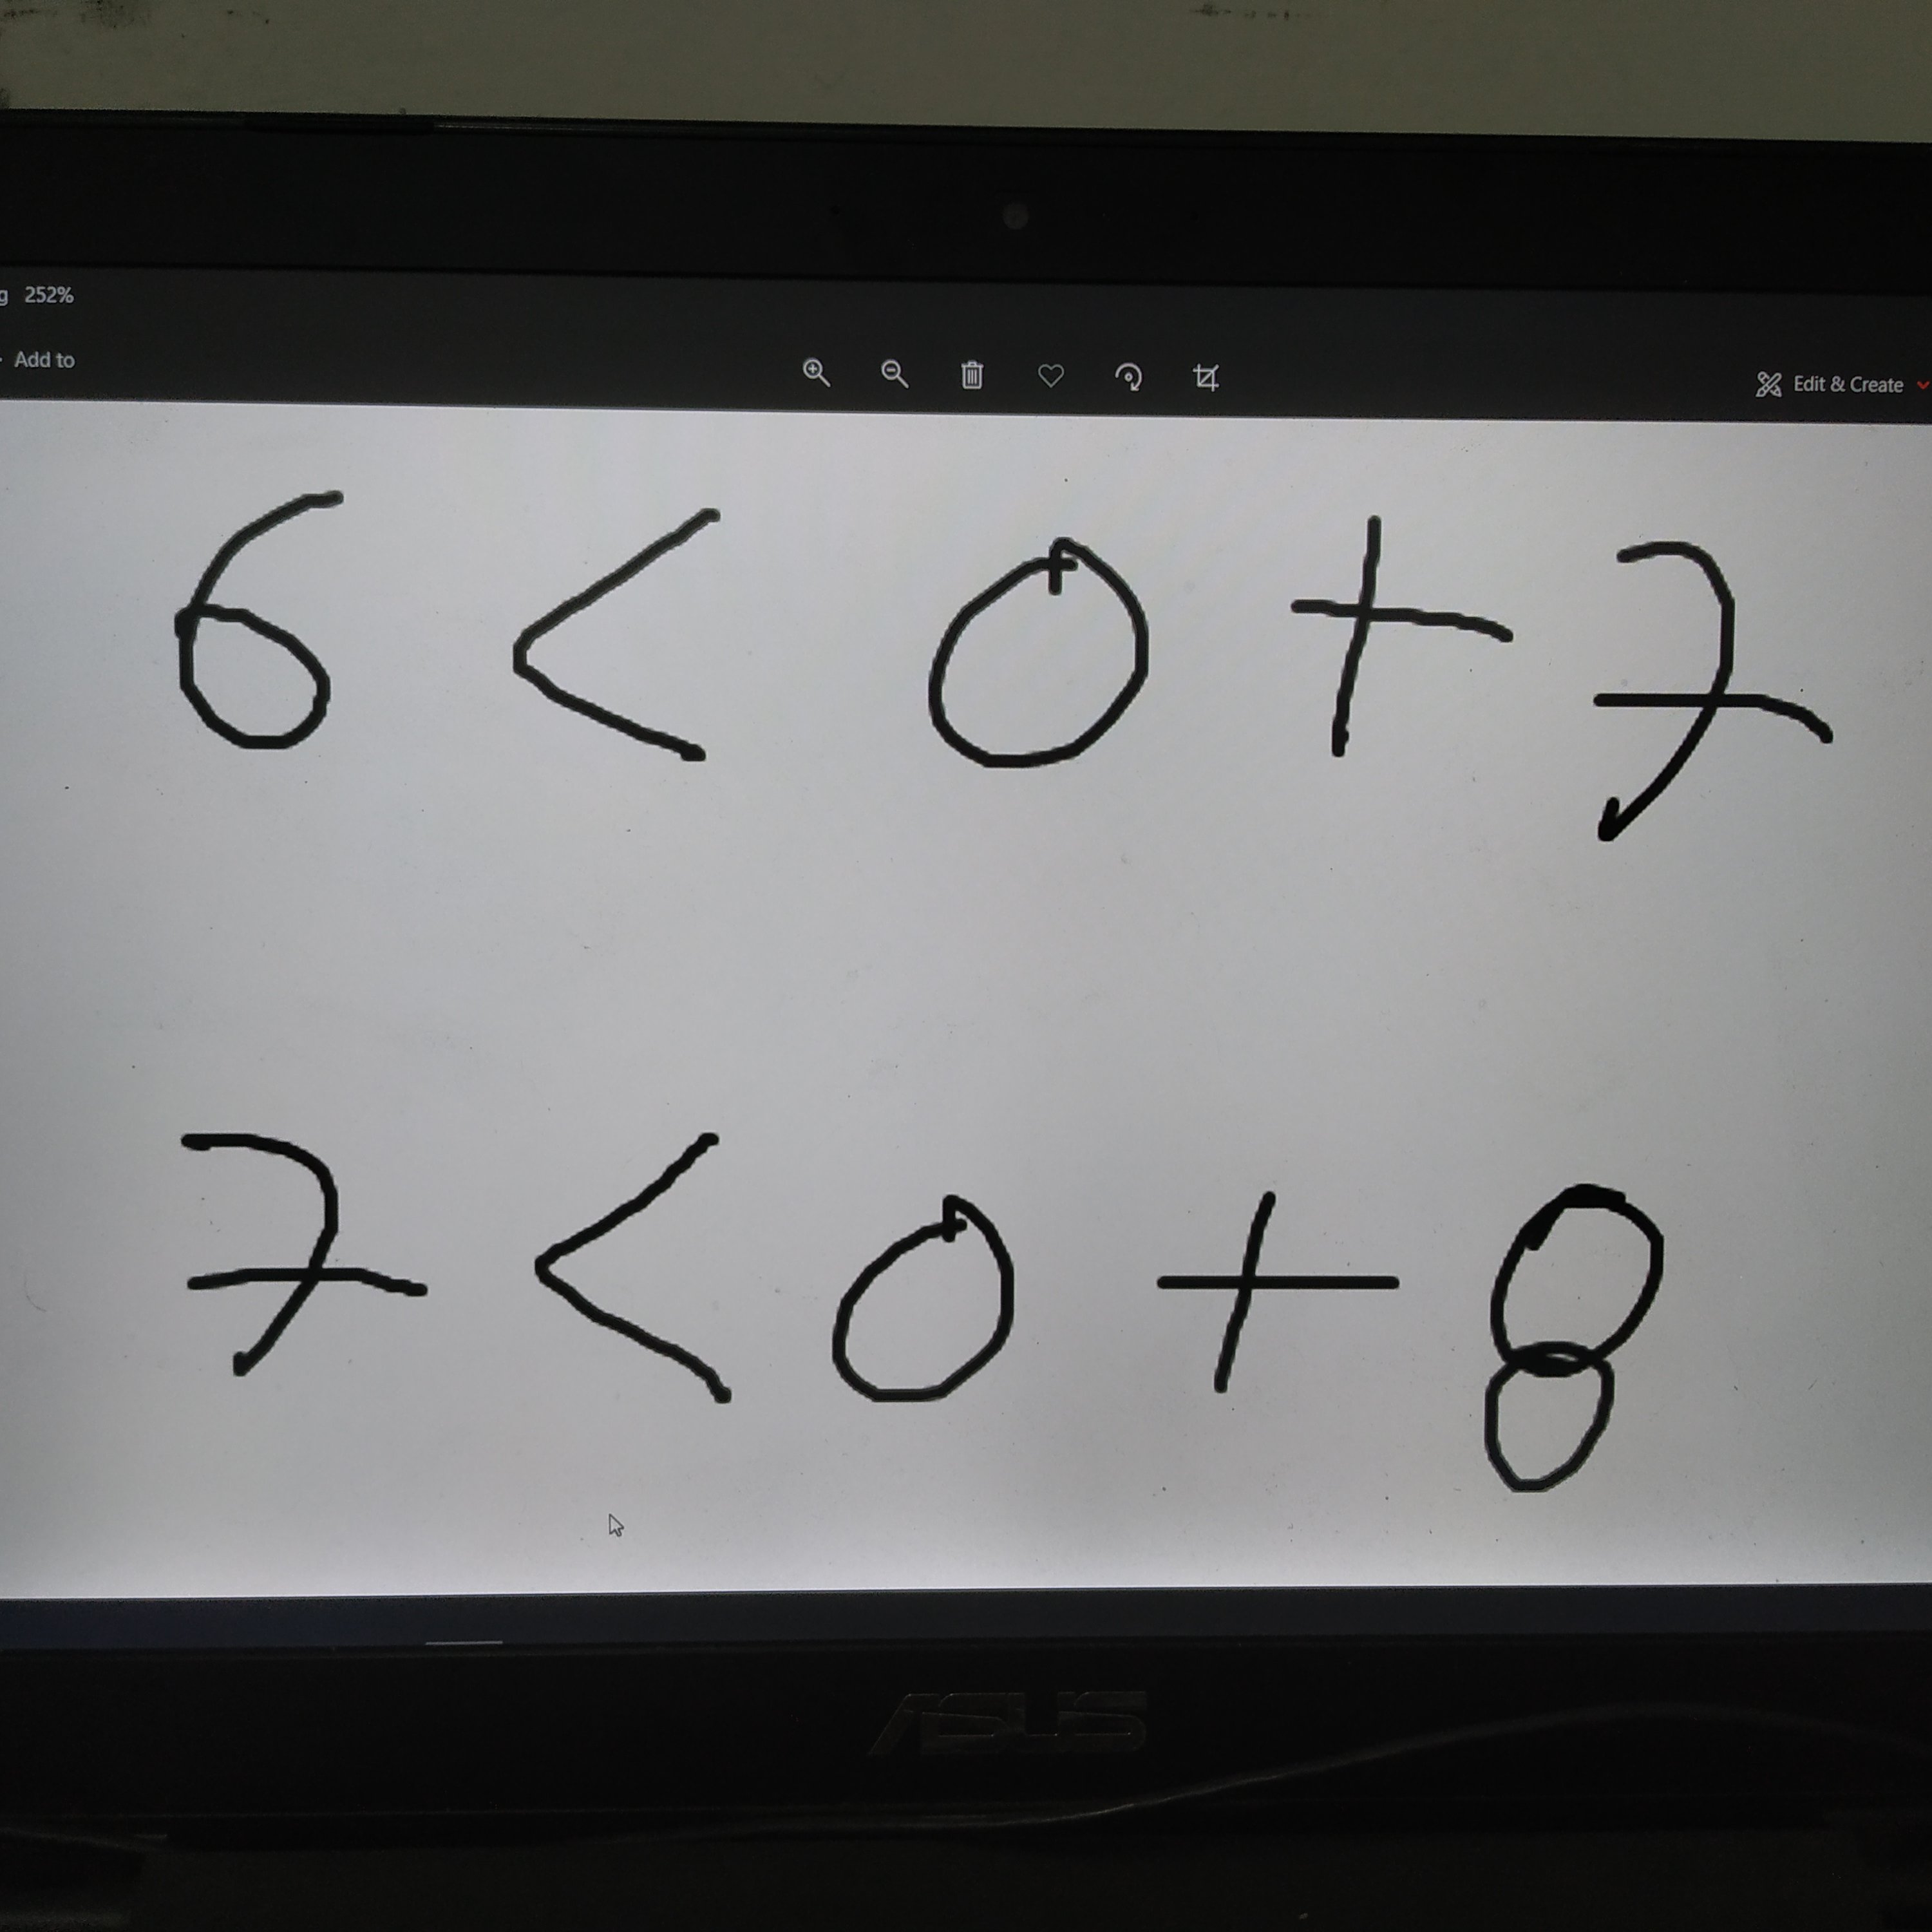 g 252%
Add to
Edit & Create
6 < 0 + 7
7 < 0 + 8
ASUS